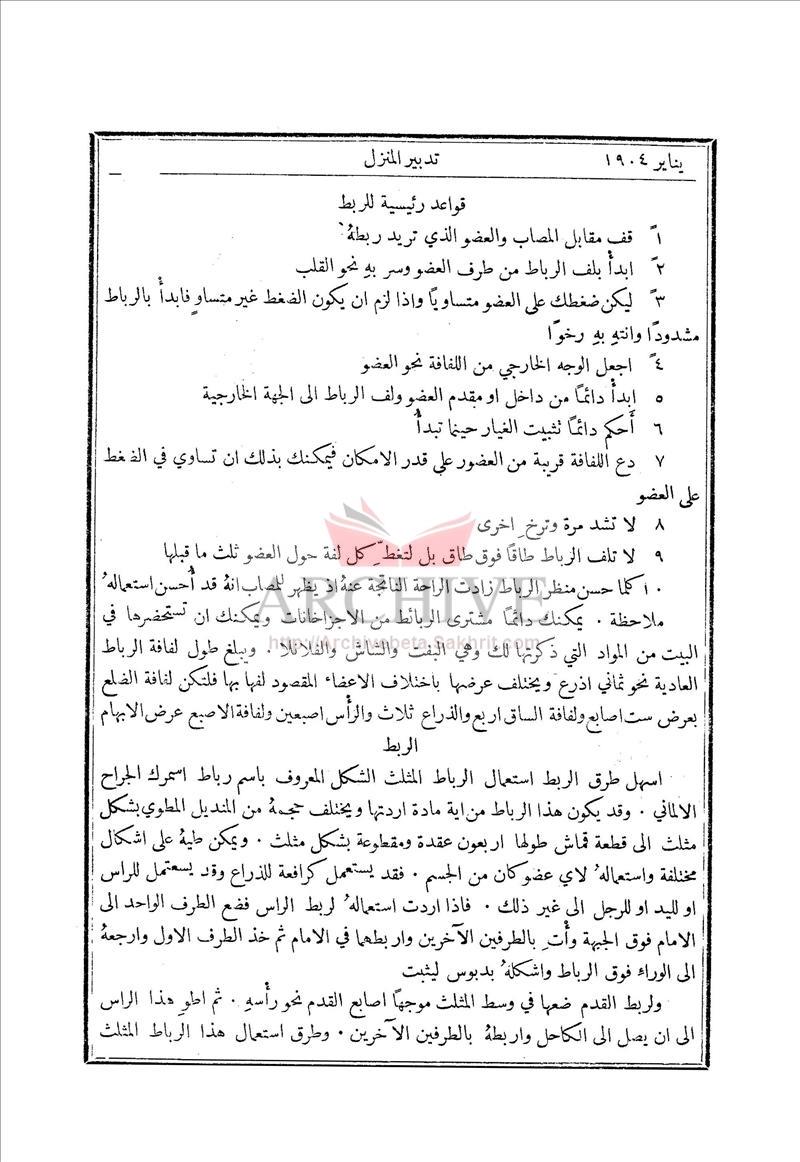 يناير ١٩٠٤ تدبير المنزل
قواعد رئيسية للربط
١ً قف مقابل المصاب والعضو الذي تريد ربطهُ
٢ً ابدأْ بلف الرباط من طرف العضو وسر بهِ نحو القلب
٣ً ليكن ضغطك على العضو متساويًا واذا لزم ان يكون الضغط غير متساوٍ فابدأْ بالرباط
مشدودًا وانتهِ بهِ رخوًا
٤ً اجعل الوجه الخارجي من اللفافة نحو العضو
٥ ابدأْ دائمًا من داخل او مقدم العضو ولف الرباط الى الجهة الخارجية
٦ أَحكم دائمًا تثبيت الغيار حينما تبدأُ
٧ دع اللفافة قريبة من العضور على قدر الامكان فيمكنك بذلك ان تساوي في الضغط
على العضو
٨ لا تشد مرة وترخِ اخرى
٩ لا تلف الرباط طاقًا فوق طاق بل لتغطِّ كل لفة حول العضو ثلث ما قبلها
١٠ كلما حسن منظر الرباط زادت الراحة الناتجة عنهُ اذ يظهر للمصاب انهُ قد أُحسن استعمالهُ
ملاحظة ٠ يمكنك دائمًا مشترى الربائط من الاجزاخانات ويمكنك ان تستحضرها في
البيت من المواد التي ذكرتها لك وهي البفت والشاش والفلانلا ٠ ويبلغ طول لفافة الرباط
العادية نحو ثماني اذرع ويختلف عرضها باختلاف الاعضاء المقصود لفها بها فلتكن لفافة الضلع
بعرض ست اصابع ولفافة الساق اربع والذراع ثلاث والرأْس اصبعين ولفافة الاصبع عرض الابهام
الربط
اسهل طرق الربط استعمال الرباط المثلث الشكل المعروف باسم رباط اسمرك الجراح
الالماني ٠ وقد يكون هذا الرباط من اية مادة اردتها ويختلف حجمهُ من المنديل المطوي بشكل
مثلث الى قطعة قماش طولها اربعون عقدة ومقطوعة بشكل مثلث ٠ ويمكن طيهُ على اشكال
مختلفة واستعمالهُ لاي عضو كان من الجسم ٠ فقد يستعمل كرافعة للذراع وقد يستعمل للراس
او لليد او للرجل الى غير ذلك ٠ فاذا اردت استعمالهُ لربط الراس فضع الطرف الواحد الى
الامام فوق الجبهة وأْتِ بالطرفين الآخرين واربطهما في الامام ثم خذ الطرف الاول وارجعهُ
الى الوراء فوق الرباط واشكلهُ بدبوس ليثبت
ولربط القدم ضعها في وسط المثلث موجهًا اصابع القدم نحو رأْسهِ ٠ ثم اطوِ هذا الراس
الى ان يصل الى الكاحل واربطهُ بالطرفين الآخرين ٠ وطرق استعمال هذا الرباط المثلث
ARCHIVE
http://Archivebeta.Sakhrit.com